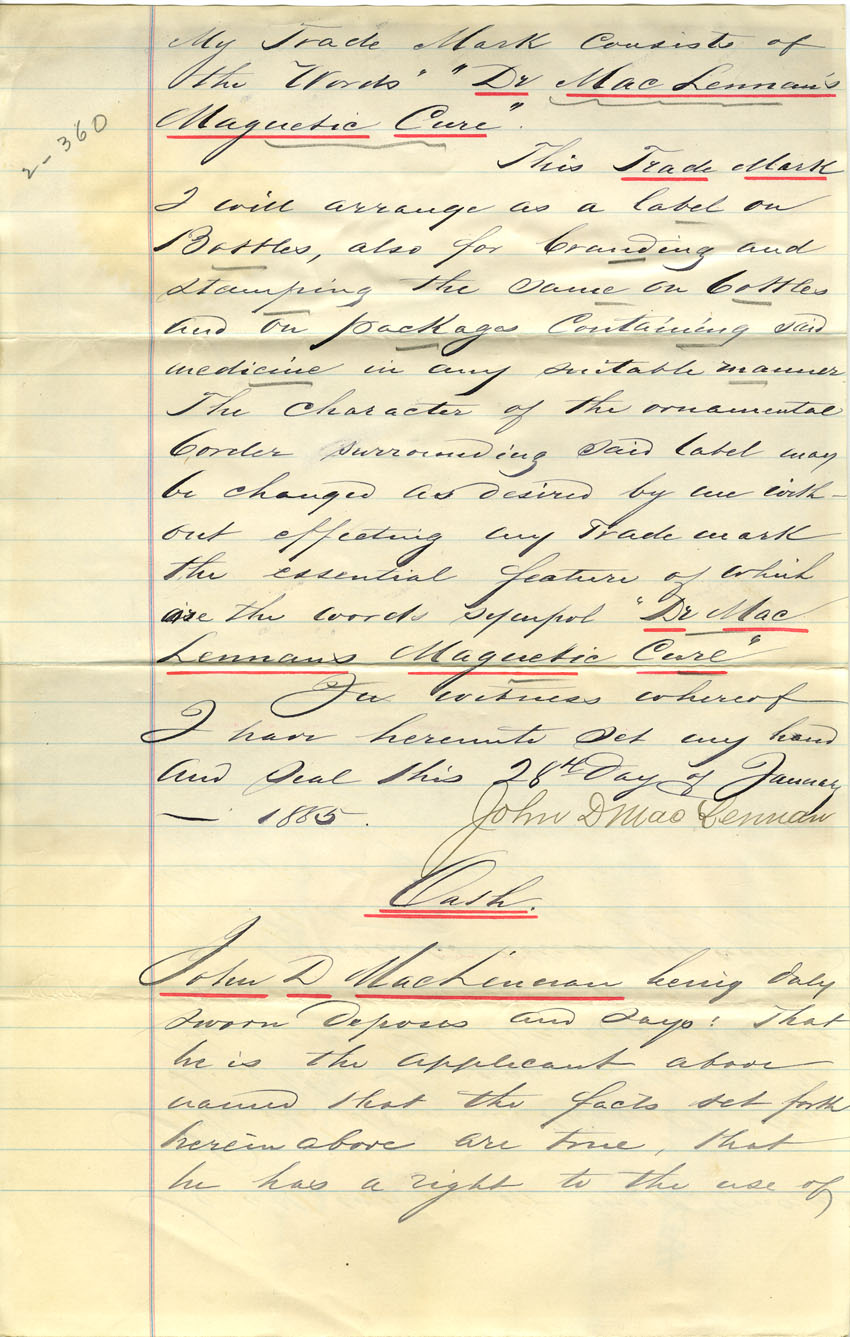 My Trade Mark Consists of
the "Words" "Dr Mac Lennan's
Magnetic Cure".
2-360
This Trade Mark
I will arrange as a label on
Bottles, also for branding and
stamping the same on bottles
and on packages Containing said
medicine in any suitable manner
The character of the ornamental
border surrounding said label may
be changed as desired by me with-
out effecting my Trade mark
the essential feature of which
are the words "Dr Mac
Lennan's Magnetic Cure"
In witness whereof
I have hereunto set my hand
and seal this 28th Day of January
— 1885. John D Mac Lennan
Oath.
John D MacLennan being duly
sworn deposes and says: That
he is the applicant above
named that the facts set forth
herein above are true, that
he has a right to the use of